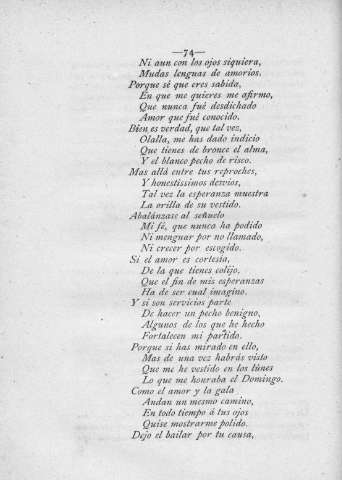 —74—
Ni aun con los ojos siquiera,
Mudas lenguas de amorios.
Porque sé que eres sabida,
En que me quieres me afirmo,
Que nunca fué desdichado
Amor que fué conocido.
Bien es verdad, que tal vez,
Olalla, me has dado indicio
Que tienes de bronce el alma,
Y el blanco pecho de risco.
Mas allá entre tus reproches,
Y honestissimos desvios,
Tal vez la esperanza muestra
La orilla de su vestido.
Abalánzase al señuelo
Mi fé, que nunca ha podido
Ni menguar por no llamado,
Ni crecer por escogido.
Si el amor es cortesia,
De la que tienes colijo,
Que el fin de mis esperanzas
Ha de ser cual imagino.
Y si son servicios parte
De hacer un pecho benigno,
Algunos de los que he hecho
Fortalecen mi partido.
Porque si has mirado en ello,
Mas de una vez habrás visto
Que me he vestido en los lúnes
Lo que me honraba el Domingo.
Como el amor y la gala
Andan un mesmo camino,
En todo tiempo á tus ojos
Quise mostrarme polido.
Dejo el bailar por tu causa,